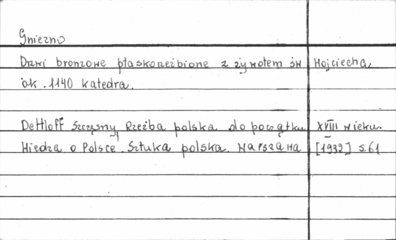 Gniezno
Drzwi bronzowe płaskorzeźbione z żywotem św Wojciecha,
ok. 1140 katedra.
Dettloff Szczęsny, Rzeźba polska do początku XVIII wieku.
Wiedza o Polsce. Sztuka polska. Warszawa [1932] s.61